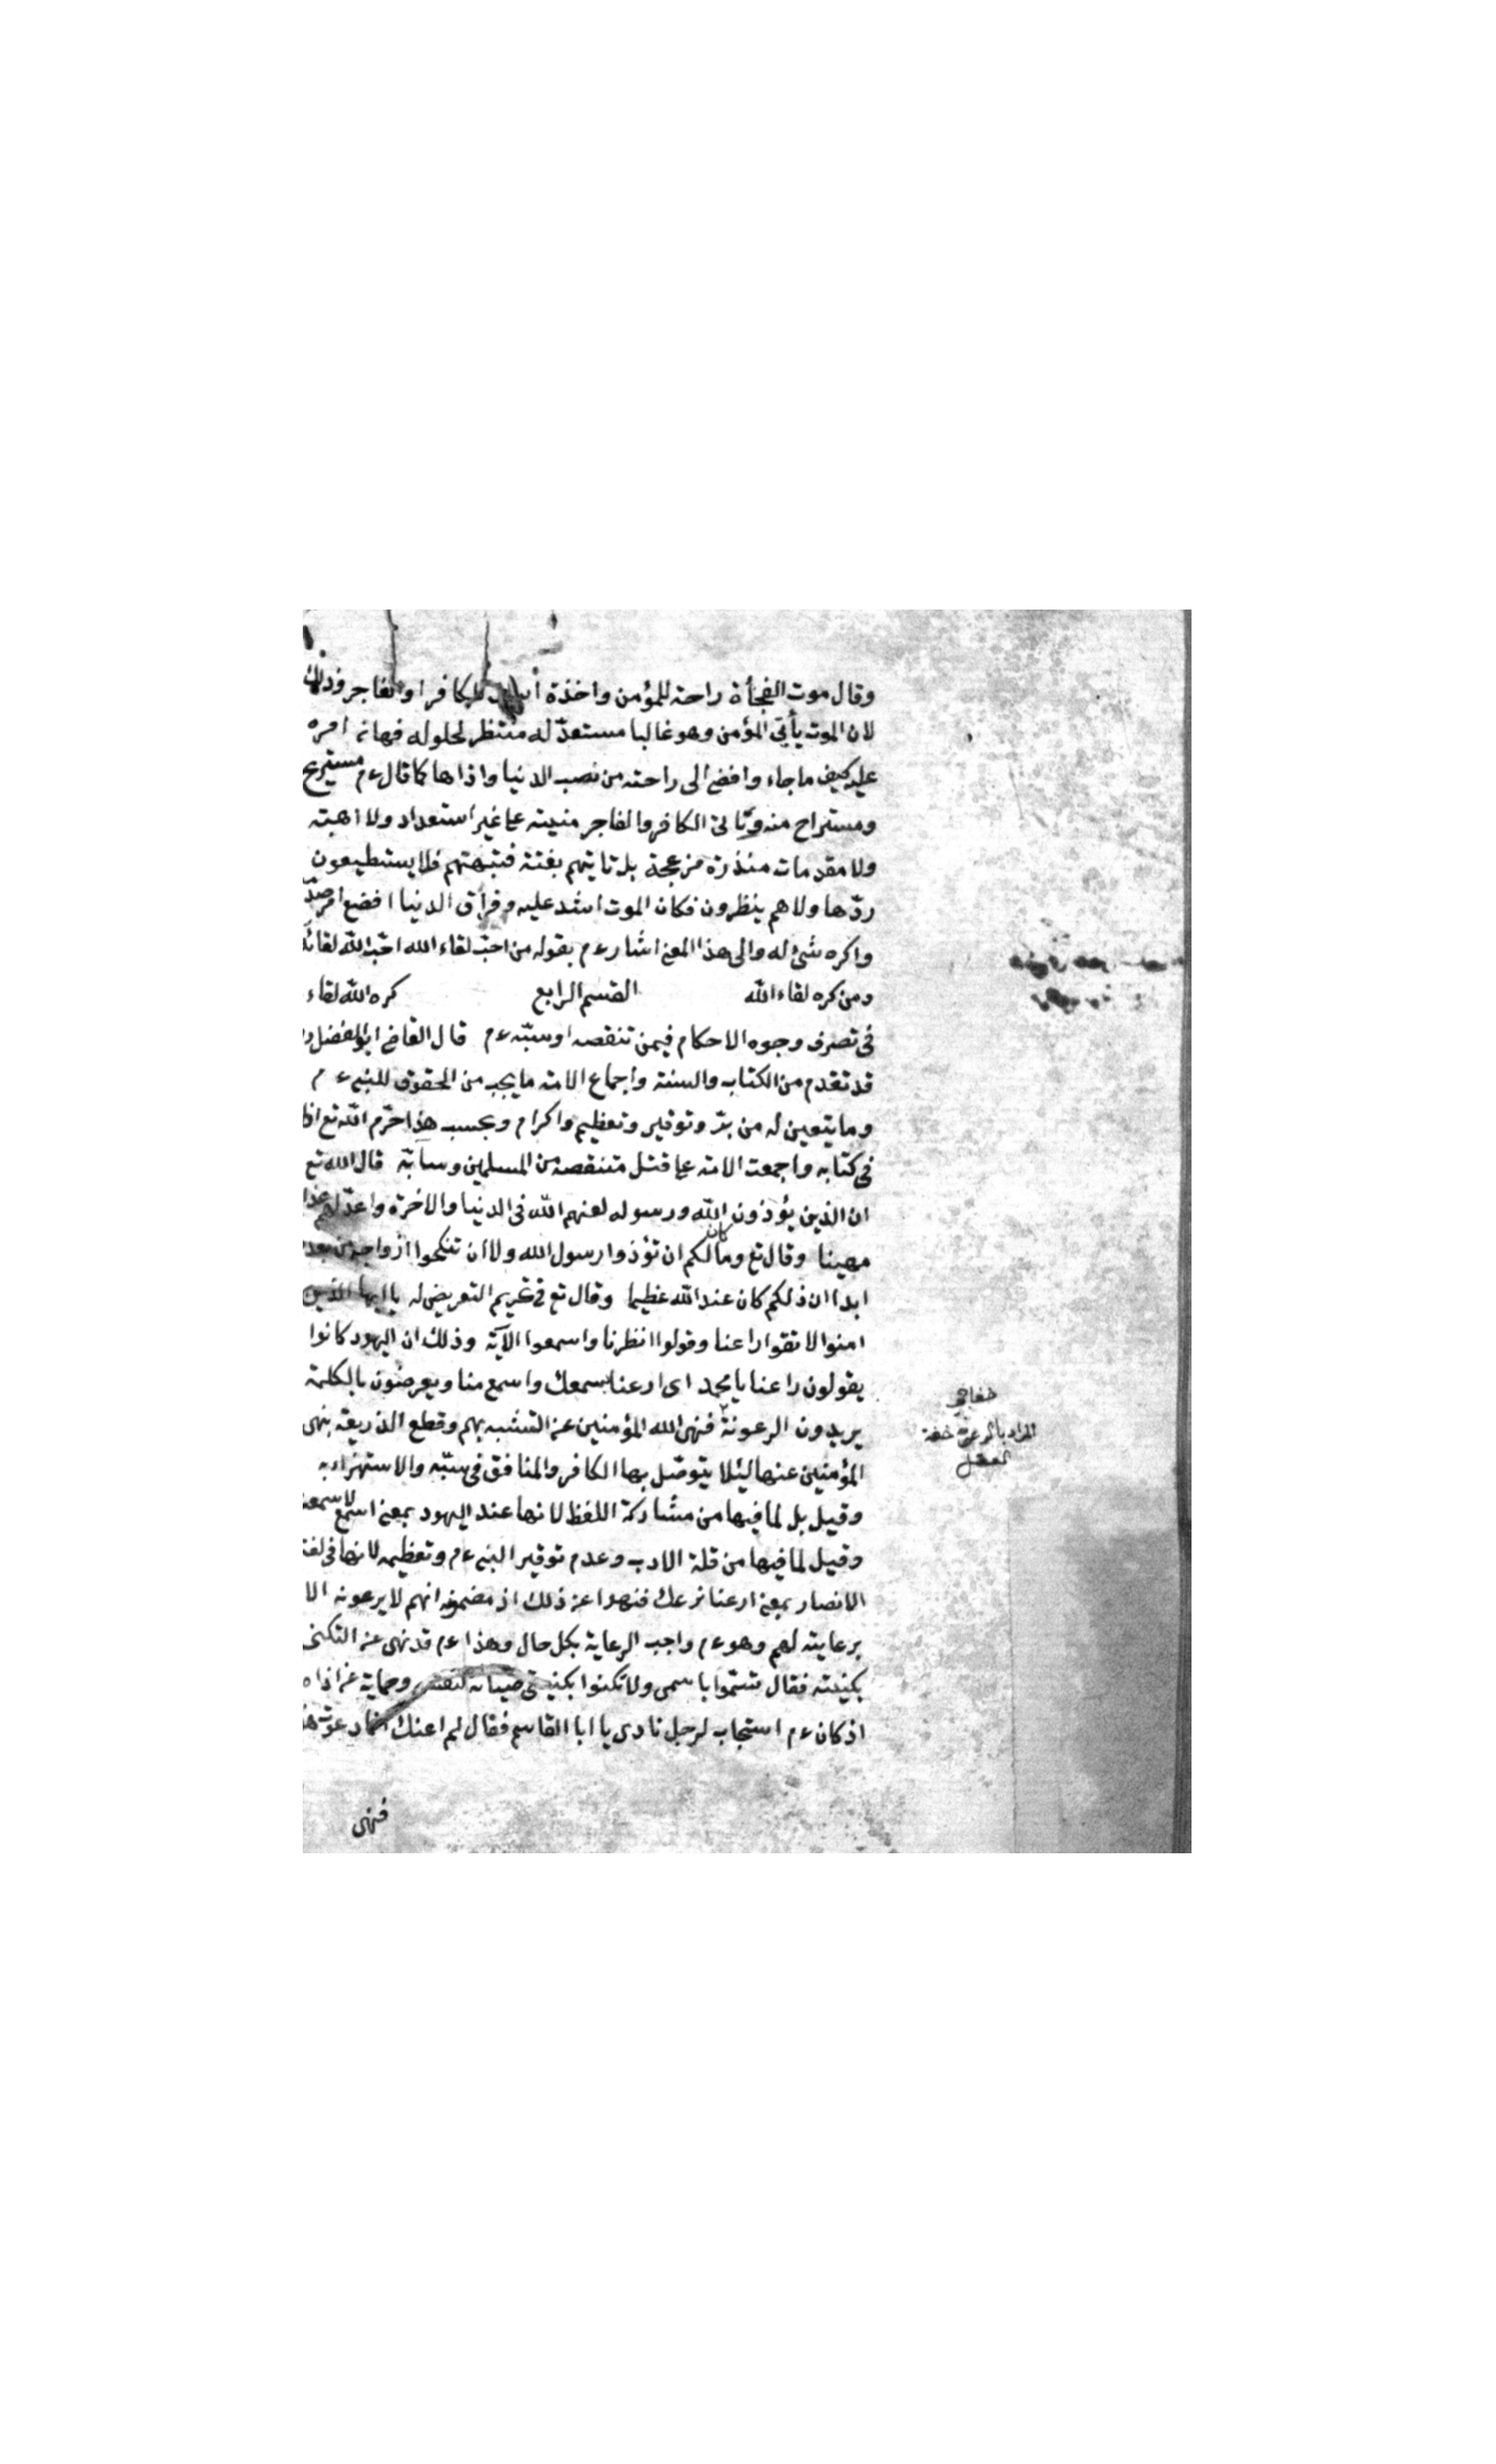 وقال موت الفجأة راحة للمؤمن واخذة للكافر او الفاجر وذلك
لان الموت يأتى المؤمن وهو غالبا مستعدّ له منتظر لحلوله فهان امره
عليه كيف ما جاء وافضى الى راحته من نصب الدنيا واذاها كما قال ءم مستريح
ومستراح منه وتأتى الكافر والفاجر منيته على غير استعداد ولا اهبته
ولا مقدمات منذرة مزعجة بل تاتيهم بغتة فتبهتهم فلا يستطيعون
ردّها ولا هم ينظرون فكان الموت اشد عليه وفراق الدنيا افضع امر
واكره شئ له والى هذا المعنى اشار ءم بقوله من احبّ لقاء الله احبّ الله لقائه
ومن كره لقاء الله كره الله لقاء
القسم الرابع
فى تصرف وجوه الاحكام فيمن تنقصه او سبّه ءم قال القاضى ابو الفضل
قد تقدم من الكتاب والسنة واجماع الامة ما يجب من الحقوق للنبى ءم
وما يتعين له من برّ وتوقير وتعظيم واكرام وبحسب هذا حرّم الله تع
فى كتابه واجمعت الامة على قتل متنقصه من المسلمين وسابّه قال الله تع
ان الذين يؤذون الله ورسوله لعنهم الله فى الدنيا والاخرة واعدّ لهم عذا
مهينا وقال تع وما كان لكم ان تؤذوا رسول الله ولا ان تنكحوا ازواجه من بعده
ابدا ان ذلكم كان عند الله عظيما وقال تع فى تحريم التعريض له يا ايها الذين
امنوا لا تقوا راعنا وقولوا انظرنا واسمعوا الآية وذلك ان اليهود كانوا
يقولون راعنا يا محمد اى ارعنا سمعك واسمع منا ويعرضون بالكلمة
يريدون الرعونة فنهى الله المؤمنين عن التشبه بهم وقطع الذريعة بنهى
المؤمنين عنها ليئلا يتوصّل بها الكافر والمنافق فى سبّه والاستهزاء به
وقيل بل لما فيها من مشاركة اللفظ لانها عند اليهود بمعنى اسمع لا سمعت
وقيل لما فيها من قلة الادب وعدم توقير النبى ءم وتعظيمه لانها فى لغة
الانصار بمعنى ارعنا نرعك فنهوا عن ذلك اذ مضمونه انهم لا يرعونه الا
برعايته لهم وهو ءم واجب الرعاية بكل حال وهذا ءم قد نهى عن التكنى
بكنيته فقال تسمّوا باسمى ولا تكنوا بكنيتى صيانة لنفسه وحماية عن اذاه
اذ كان ءم استجاب لرجل نادى يا ابا القاسم فقال لم اعنك انما دعوت هذا
فنهى
خفاجى
المراد بالرعونة خفة
العقل